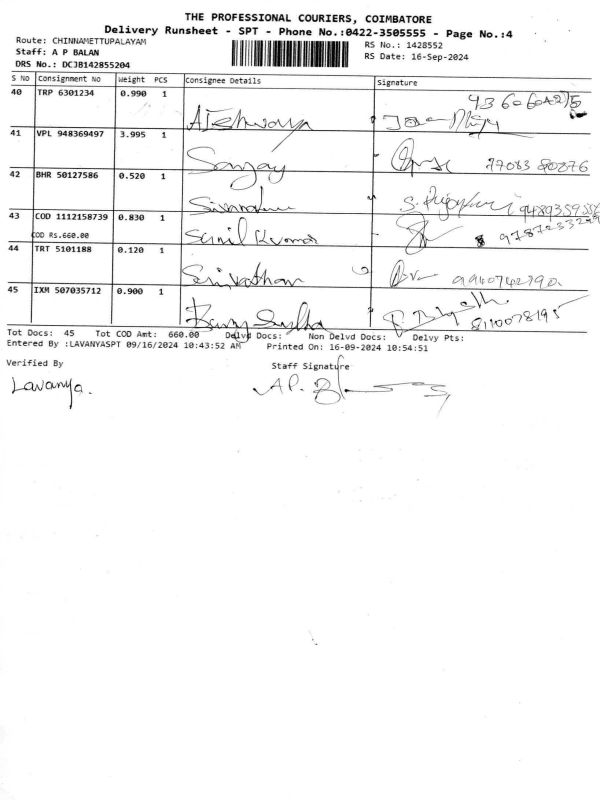 THE PROFESSIONAL COURIERS, COIMBATORE
Delivery Runsheet - SPT - Phone No.:0422-3505555 - Page No.:4
Route: CHINNAMETTUPALAYAM
Staff: A P BALAN
DRS No.: DCJB142855204
RS No.: 1428552
RS Date: 16-Sep-2024
S No Consignment No Weight PCS Consignee Details Signature
40 TRP 6301234 0.990 1
Aishwarya
41 VPL 948369497 3.995 1
Sanjay 77083 80876
42 BHR 50127586 0.520 1
43 COD 1112158739 0.830 1
COD Rs.660.00
Sunil Kumar
44 TRT 5101188 0.120 1
9940742790
45 IXM 507035712 0.900 1
Tot Docs: 45 Tot COD Amt: 660.00 Delvd Docs: Non Delvd Docs: Delvy Pts:
Entered By :LAVANYASPT 09/16/2024 10:43:52 AM Printed On: 16-09-2024 10:54:51
Verified By Staff Signature
Lavanya.